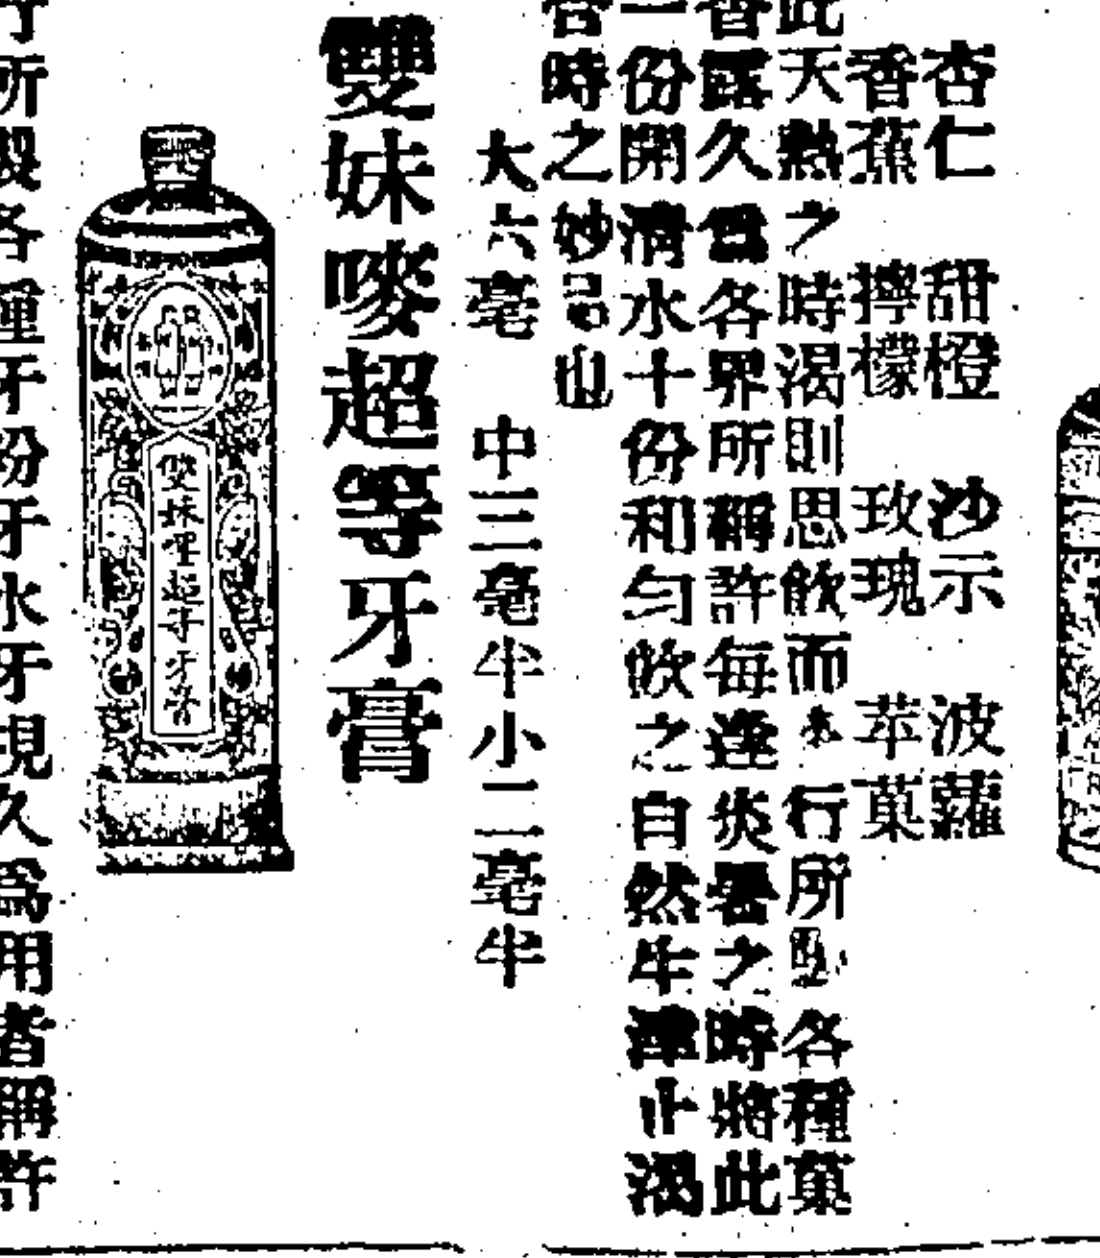 杏仁 甜橙 沙示 波蘿
香蕉 擰檬 玫瑰 苹菓
此天熱之時渴則思飲而本行所製各種菓
香露久爲各界所稱許每逢炎暑之時將此
一份開清水十份和勻飲之自然生津止渴
時之妙品也
大六毫 中三毫半 小二毫半
雙妹嘜超等牙膏
雙妹嘜超等牙膏
行所製各種牙粉牙水牙規久爲用者稱許